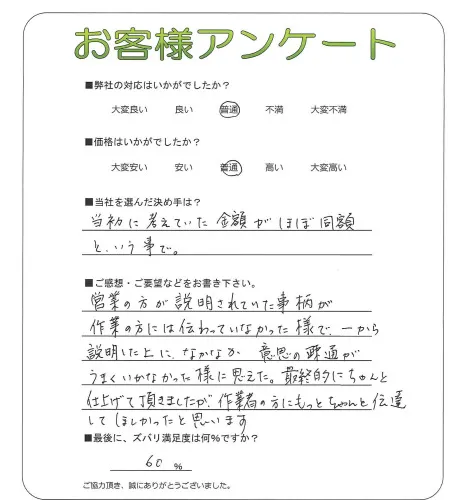 お客様アンケート
■弊社の対応はいかがでしたか？
大変良い 良い 普通 不満 大変不満
■価格はいかがでしたか？
大変安い 安い 普通 高い 大変高い
■当社を選んだ決め手は？
当初に考えていた金額がほぼ同額
という事で。
■ご感想・ご要望などをお書き下さい。
営業の方が説明されていた事柄が
作業の方には伝わっていなかった様で、一から
説明した上に、なかなか意思の疎通が
うまくいかなかった様に思えた。最終的にちゃんと
仕上げて頂きましたが、作業者の方にもっとちゃんと伝達
してほしかったと思います
■最後に、ズバリ満足度は何％ですか？
60 ％
ご協力頂き、誠にありがとうございました。